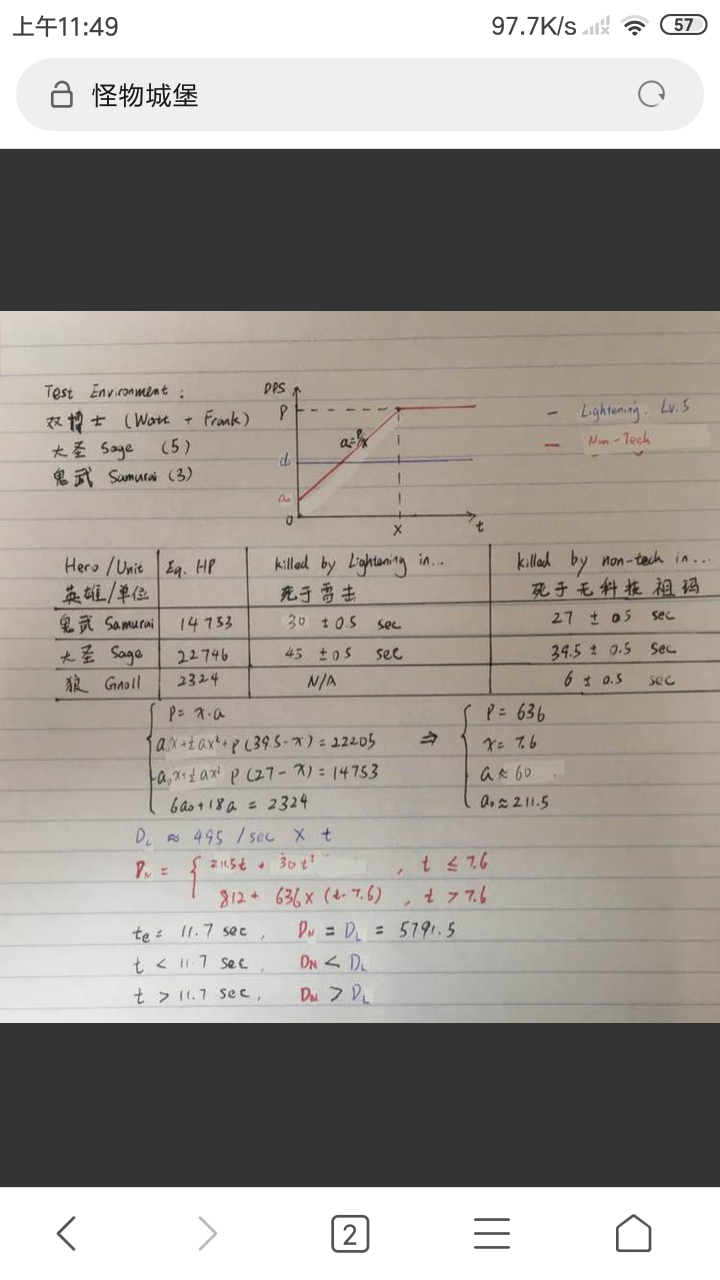 上午11:49 97.7K/s 57
怪物城堡
Test Environment:
双博士 (Watt + Frank)
大圣 Sage (5)
鬼武 Samurai (3)
DPS
P
a=P/x
d₀
a₀
0
x
t
— Lightening. Lv.5
— Non-Tech
Hero/Unit Eq. HP killed by Lightening in... killed by non-tech in...
英雄/单位 死于雷击 死于无科技祖玛
鬼武 Samurai 14753 30 ±0.5 sec 27 ± 05 sec
大圣 Sage 22746 45 ±05 sec 39.5 ± 0.5 sec
狼 Gnoll 2324 N/A 6 ± 0.5 sec
P = x·a
a₀x+½ax²+P(39.5-x) = 22205
a₀x+½ax² P(27-x) = 14753
6a₀+18a = 2324
⇒
P = 636
x = 7.6
a ≈ 60
a₀ ≈ 211.5
D_L ≈ 495 /sec × t
D_N = { 211.5t + 30t² , t ≤ 7.6
812 + 636×(t-7.6) , t > 7.6
te = 11.7 sec, D_N = D_L = 5791.5
t < 11.7 sec, D_N < D_L
t > 11.7 sec, D_N > D_L
2